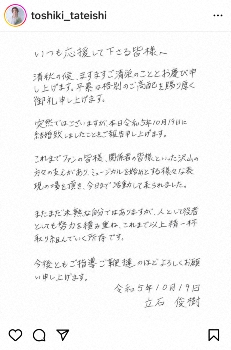 toshiki_tateishi
いつも応援して下さる皆様へ
清秋の候、ますますご清栄のこととお慶び申
し上げます。平素は格別のご高配を賜り厚く
御礼申し上げます。
突然ではございますが本日令和5年10月19日に
結婚致しましたことをご報告申し上げます。
これまでファンの皆様、関係者の皆様といった沢山の
方々の支えがあり、ミュージカルを始めとする様々な表
現の場を頂き、今日まで活動して来られました。
まだまだ未熟な自分ではありますが、人として役者
としても努力を積み重ね、これまで以上精一杯
取り組んでいく所存です。
今後ともご指導ご鞭撻のほどよろしくお願
い申し上げます。
令和5年10月19日
立石 俊樹